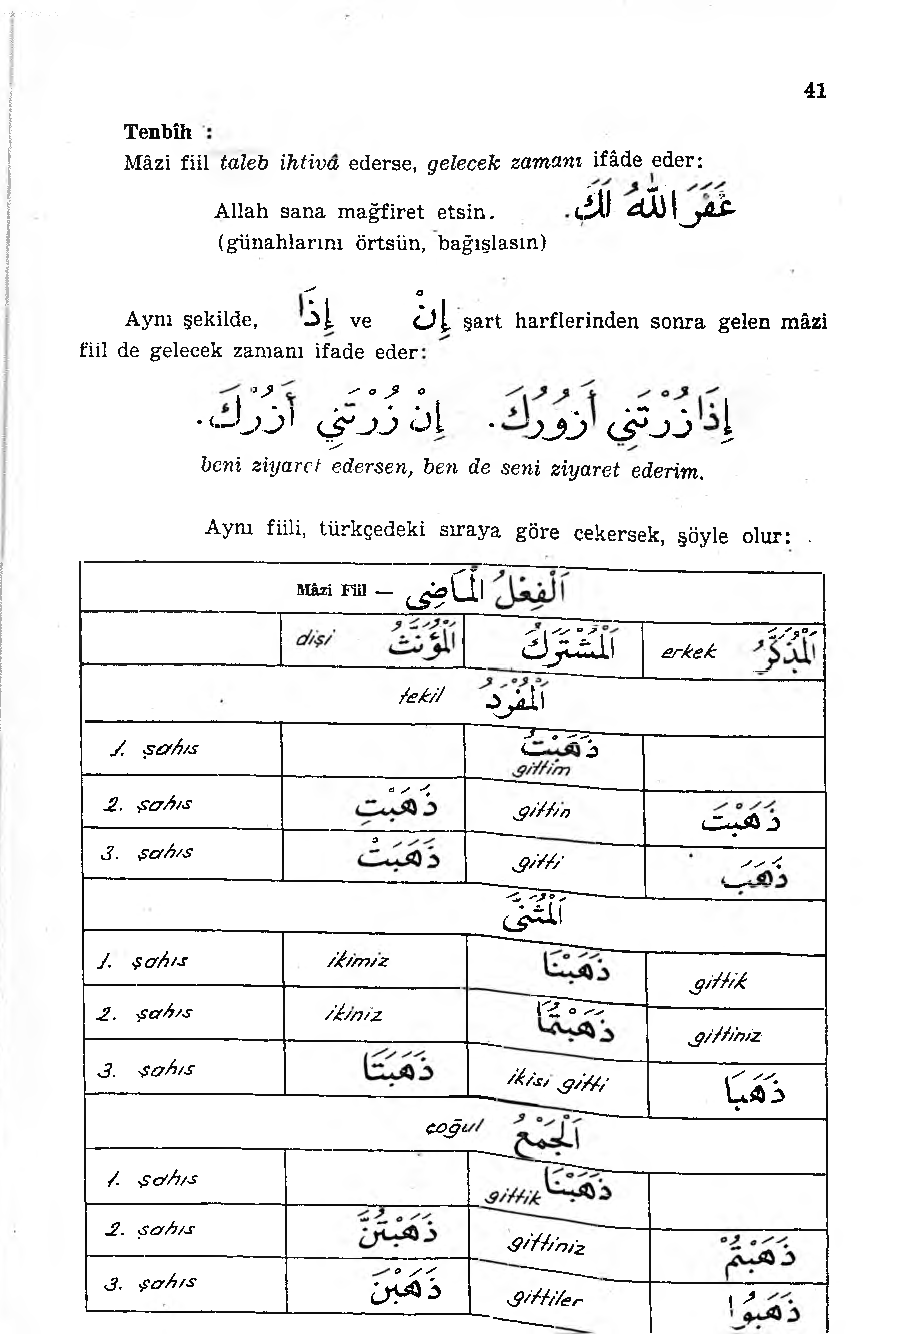 41
Tenbîh :
Mâzi fiil taleb ihtivâ ederse, gelecek zamanı ifâde eder:
Allah sana mağfiret etsin. غَفَرَ اللّٰهُ لَكَ.
(günahlarını örtsün, bağışlasın)
Aynı şekilde, إِذَا ve إِنْ şart harflerinden sonra gelen mâzi
fiil de gelecek zamanı ifade eder:
إِذَا زُرْتَنِي أَزُورُكَ. إِنْ زُرْتَنِي أَزُرْكَ.
beni ziyaret edersen, ben de seni ziyaret ederim.
Aynı fiili, türkçedeki sıraya göre cekersek, şöyle olur:
Mâzi Fiil — اَلْفِعْلُ الْمَاضِي
dişi اَلْمُؤَنَّثُ اَلْمُشْتَرَكُ erkek اَلْمُذَكَّرُ
tekil اَلْمُفْرَدُ
1. şahıs ذَهَبْتُ
gittim
2. şahıs ذَهَبْتِ gittin ذَهَبْتَ
3. şahıs ذَهَبَتْ gitti ذَهَبَ
اَلْمُثَنَّى
1. şahıs ikimiz ذَهَبْنَا gittik
2. şahıs ikiniz ذَهَبْتُمَا gittiniz
3. şahıs ذَهَبَتَا ikisi gitti ذَهَبَا
çoğul اَلْجَمْعُ
1. şahıs gittik ذَهَبْنَا
2. şahıs ذَهَبْتُنَّ gittiniz ذَهَبْتُمْ
3. şahıs ذَهَبْنَ gittiler ذَهَبُوا